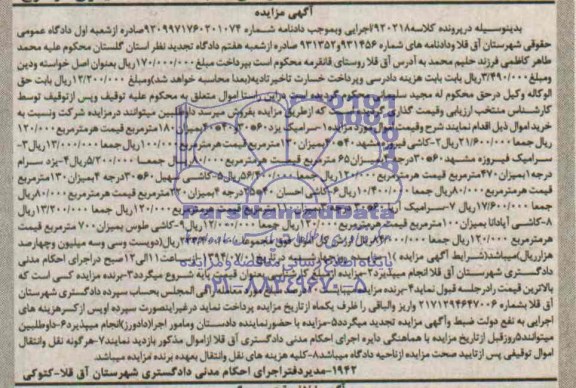 آگهی مزایده
بدینوسیله درپرونده کلاسه ۹۳۰۲۱۸ اجرایی وبموجب دادنامه شماره ۹۳۰۹۹۷۱۷۶۰۳۰۱۰۷۴ صادره ازشعبه اول دادگاه عمومی
حقوقی شهرستان آق قلا ودادنامه های شماره ۹۳۱۴۵۶و۹۳۱۳۵۲ صادره ازشعبه هفتم دادگاه تجدید نظر استان گلستان محکوم علیه محمد
طاهر کاظمی فرزند حلیم محمد به آدرس آق قلا روستای قانقرمه محکوم است بپرداخت مبلغ ۱۷۰/۰۰۰/۰۰۰ریال بعنوان اصل خواسته ودین
ومبلغ ۳/۴۹۰/۰۰۰ ریال بابت بابت هزینه دادرسی وپرداخت خسارت تاخیرتادیه(بعدا محاسبه خواهد شد)ومبلغ ۱۲/۲۰۰/۰۰۰ ریال بابت حق
الوکاله وکیل درحق محکوم له مجید سلیمانی محکوم گردیده است دراین راستا اموال متعلق به محکوم علیه توقیف وپس ازتوقیف توسط
کارشناس منتخب ارزیابی وقیمت گذاری که ازطریق مزایده بفروش میرسد داوطلبین میتوانند درمزایده شرکت ونسبت به
خرید اموال ذیل اقدام نمایند شرح وقیمت مورد مزایده ۱-سرامیک یزد ۶۰*۳۰ بمیزان ۱۸۰مترمربع قیمت هرمترمربع ۱۲۰/۰۰۰
ریال جمعا ۲۱/۶۰۰/۰۰۰ریال ۲-کاشی فیروزه مشهد بمیزان ۱۳۰مترمربع قیمت هرمترمربع ۱۰۰/۰۰۰ریال جمعا ۱۳/۰۰۰/۰۰۰ریال ۳-
سرامیک فیروزه مشهد بمیزان ۶۵ مترمربع قیمت هرمترمربع جمعا ۵/۲۰۰/۰۰۰ریال ۴-یزد سرام
درجه ۱بمیزان ۴۷۰مترمربع قیمت هرمترمربع ۱۲۰/۰۰۰ریال جمعا ۵۶/۴۰۰/۰۰۰ریال ۵-کاشی درجه ۲ بمیزان ۱۳۰مترمربع
قیمت هرمترمربع ۸۰/۰۰۰ریال جمعا ۱۰/۴۰۰/۰۰۰ریال ۶-کاشی احسان درجه ۳بمیزان ۲۲۰مترمربع قیمت هرمترمربع ۸۰/۰۰۰ریال
جمعا ۱۷/۶۰۰/۰۰۰ ریال ۷-سرامیک قیمت هرمترمربع ۱۲۰/۰۰۰ریال جمعا ۱۳/۲۰۰/۰۰۰ریال
۸-کاشی آپادانا بمیزان ۱۰۰مترمربع قیمت هرمترمربع ۱۲۰/۰۰۰ریال جمعا ۱۲/۰۰۰/۰۰۰ریال ۹-کاشی طوس بمیزان ۷۰۰ مترمربع قیمت
هرمترمربع ۱۲۰/۰۰۰ریال جمعا ریال(دویست وسی وسه میلیون وچهارصد
هزارریال)میباشد(شرایط آگهی مزایده ساعت ۱۱الی ۱۲صبح دراجرای احکام مدنی
دادگستری شهرستان آق قلا انجام میپذیرد ۲-مزایده ازمبلغ کارشناسی بعنوان قیمت پایه شروع میگردد ۳-برنده مزایده کسی است که
بالاترین قیمت رادرجلسه قبول نماید ۴-برنده مزایده فی المجلس بحساب سپرده دادگستری شهرستان
آق قلا بشماره ۲۱۷۱۲۹۴۶۴۷۰۰۶ واریز والباقی را ظرف یکماه ازتاریخ مزایده پرداخت نماید درغیراینصورت سپرده اوپس ازکسرهزینه های
اجرایی به نفع دولت ضبط وآگهی مزایده تجدید میگردد ۵-مزایده با حضورنماینده دادستان ومامور اجرا(دادورز)انجام میپذیرد ۶-داوطلبین
میتوانند ۵روزقبل ازتاریخ مزایده با هماهنگی دایره اجرای احکام مدنی دادگستری آق قلا ازاموال مذکور بازدید نمایند ۷-هرگونه نقل وانتقال
اموال توقیفی پس ازتایید صحت مزایده ازناحیه دادگاه میباشد ۸-کلیه هزینه های نقل وانتقال بعهده برنده مزایده میباشد.
۱۹۴۲-مدیردفتراجرای احکام مدنی دادگستری شهرستان آق قلا-کتوکی
ParsNamadData
پایگاه اطلاع رسانی مناقصه و مزایده
۰۲۱-۸۸۳۴۹۶۷۰-۵